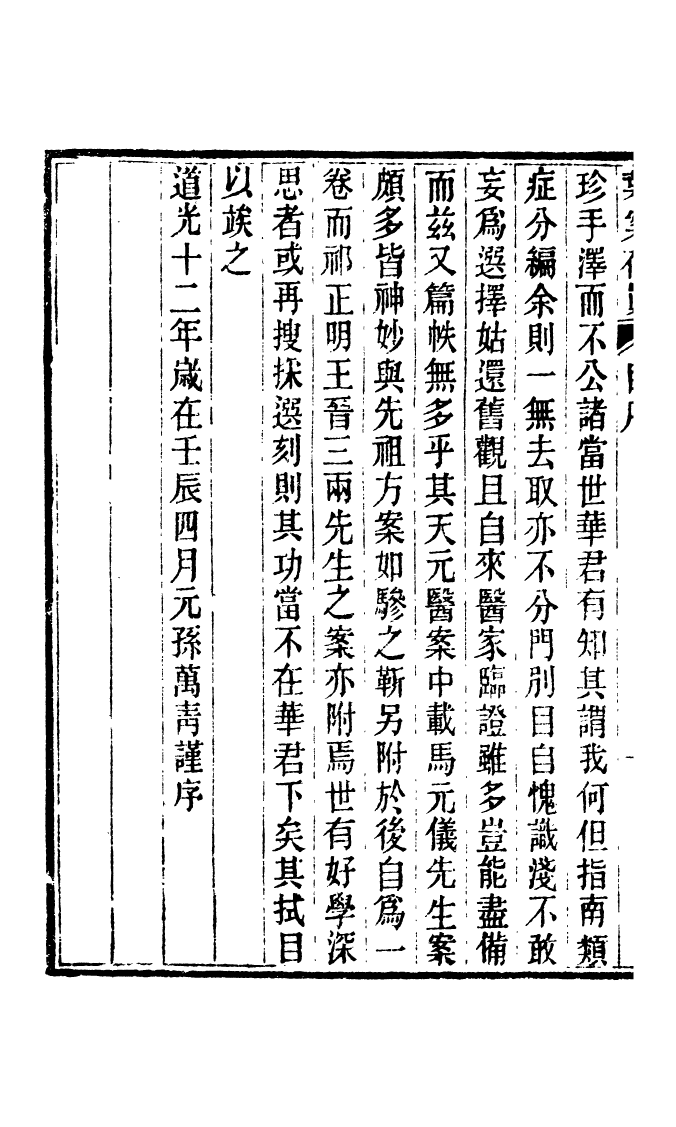 珍手澤而不公諸當世華君有知其謂我何但指南類
症分編余則一無去取亦不分門別目自愧識淺不敢
妄爲選擇姑還舊觀且自來醫家臨證雖多豈能盡備
而兹又篇帙無多乎其天元醫案中載馬元儀先生案
頗多皆神妙與先祖方案如驂之靳另附於後自爲一
卷而祁正明王晉三兩先生之案亦附焉世有好學深
思者或再搜採選刻則其功當不在華君下矣其拭目
以竢之
道光十二年歲在壬辰四月元孫萬青謹序